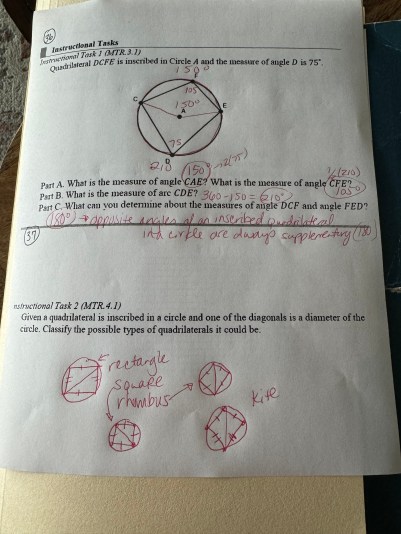 36
Instructional Tasks
Instructional Task 1 (MTR.3.1)
Quadrilateral DCFE is inscribed in Circle A and the measure of angle D is 75°.
150
F
105
C
150°
E
A
75
D
210
150° → 2(75)
1/2(210)
Part A. What is the measure of angle CAE? What is the measure of angle CFE?
105°
Part B. What is the measure of arc CDE? 360-150 = 210°
Part C. What can you determine about the measures of angle DCF and angle FED?
180° → opposite angles of an inscribed quadrilateral
37
in a circle are always supplementary (180)
Instructional Task 2 (MTR.4.1)
Given a quadrilateral is inscribed in a circle and one of the diagonals is a diameter of the
circle. Classify the possible types of quadrilaterals it could be.
rectangle
square
rhombus
kite